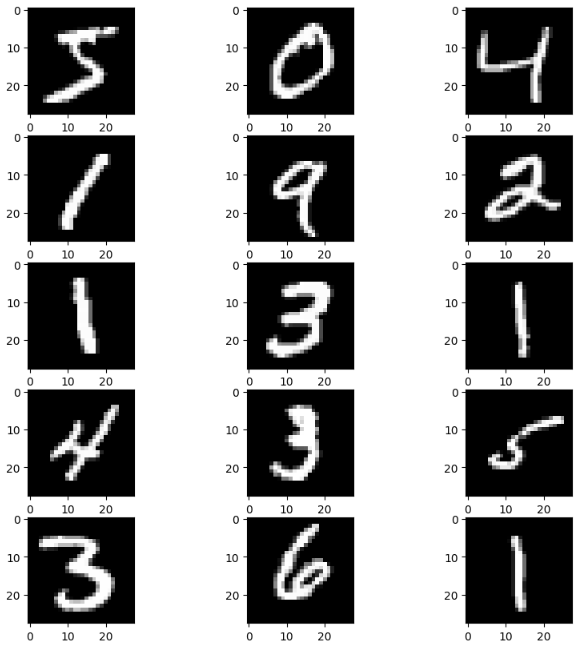 0
10
20
0 10 20
5
0
10
20
0 10 20
0
0
10
20
0 10 20
4
0
10
20
0 10 20
1
0
10
20
0 10 20
9
0
10
20
0 10 20
2
0
10
20
0 10 20
1
0
10
20
0 10 20
3
0
10
20
0 10 20
1
0
10
20
0 10 20
4
0
10
20
0 10 20
3
0
10
20
0 10 20
5
0
10
20
0 10 20
3
0
10
20
0 10 20
6
0
10
20
0 10 20
1